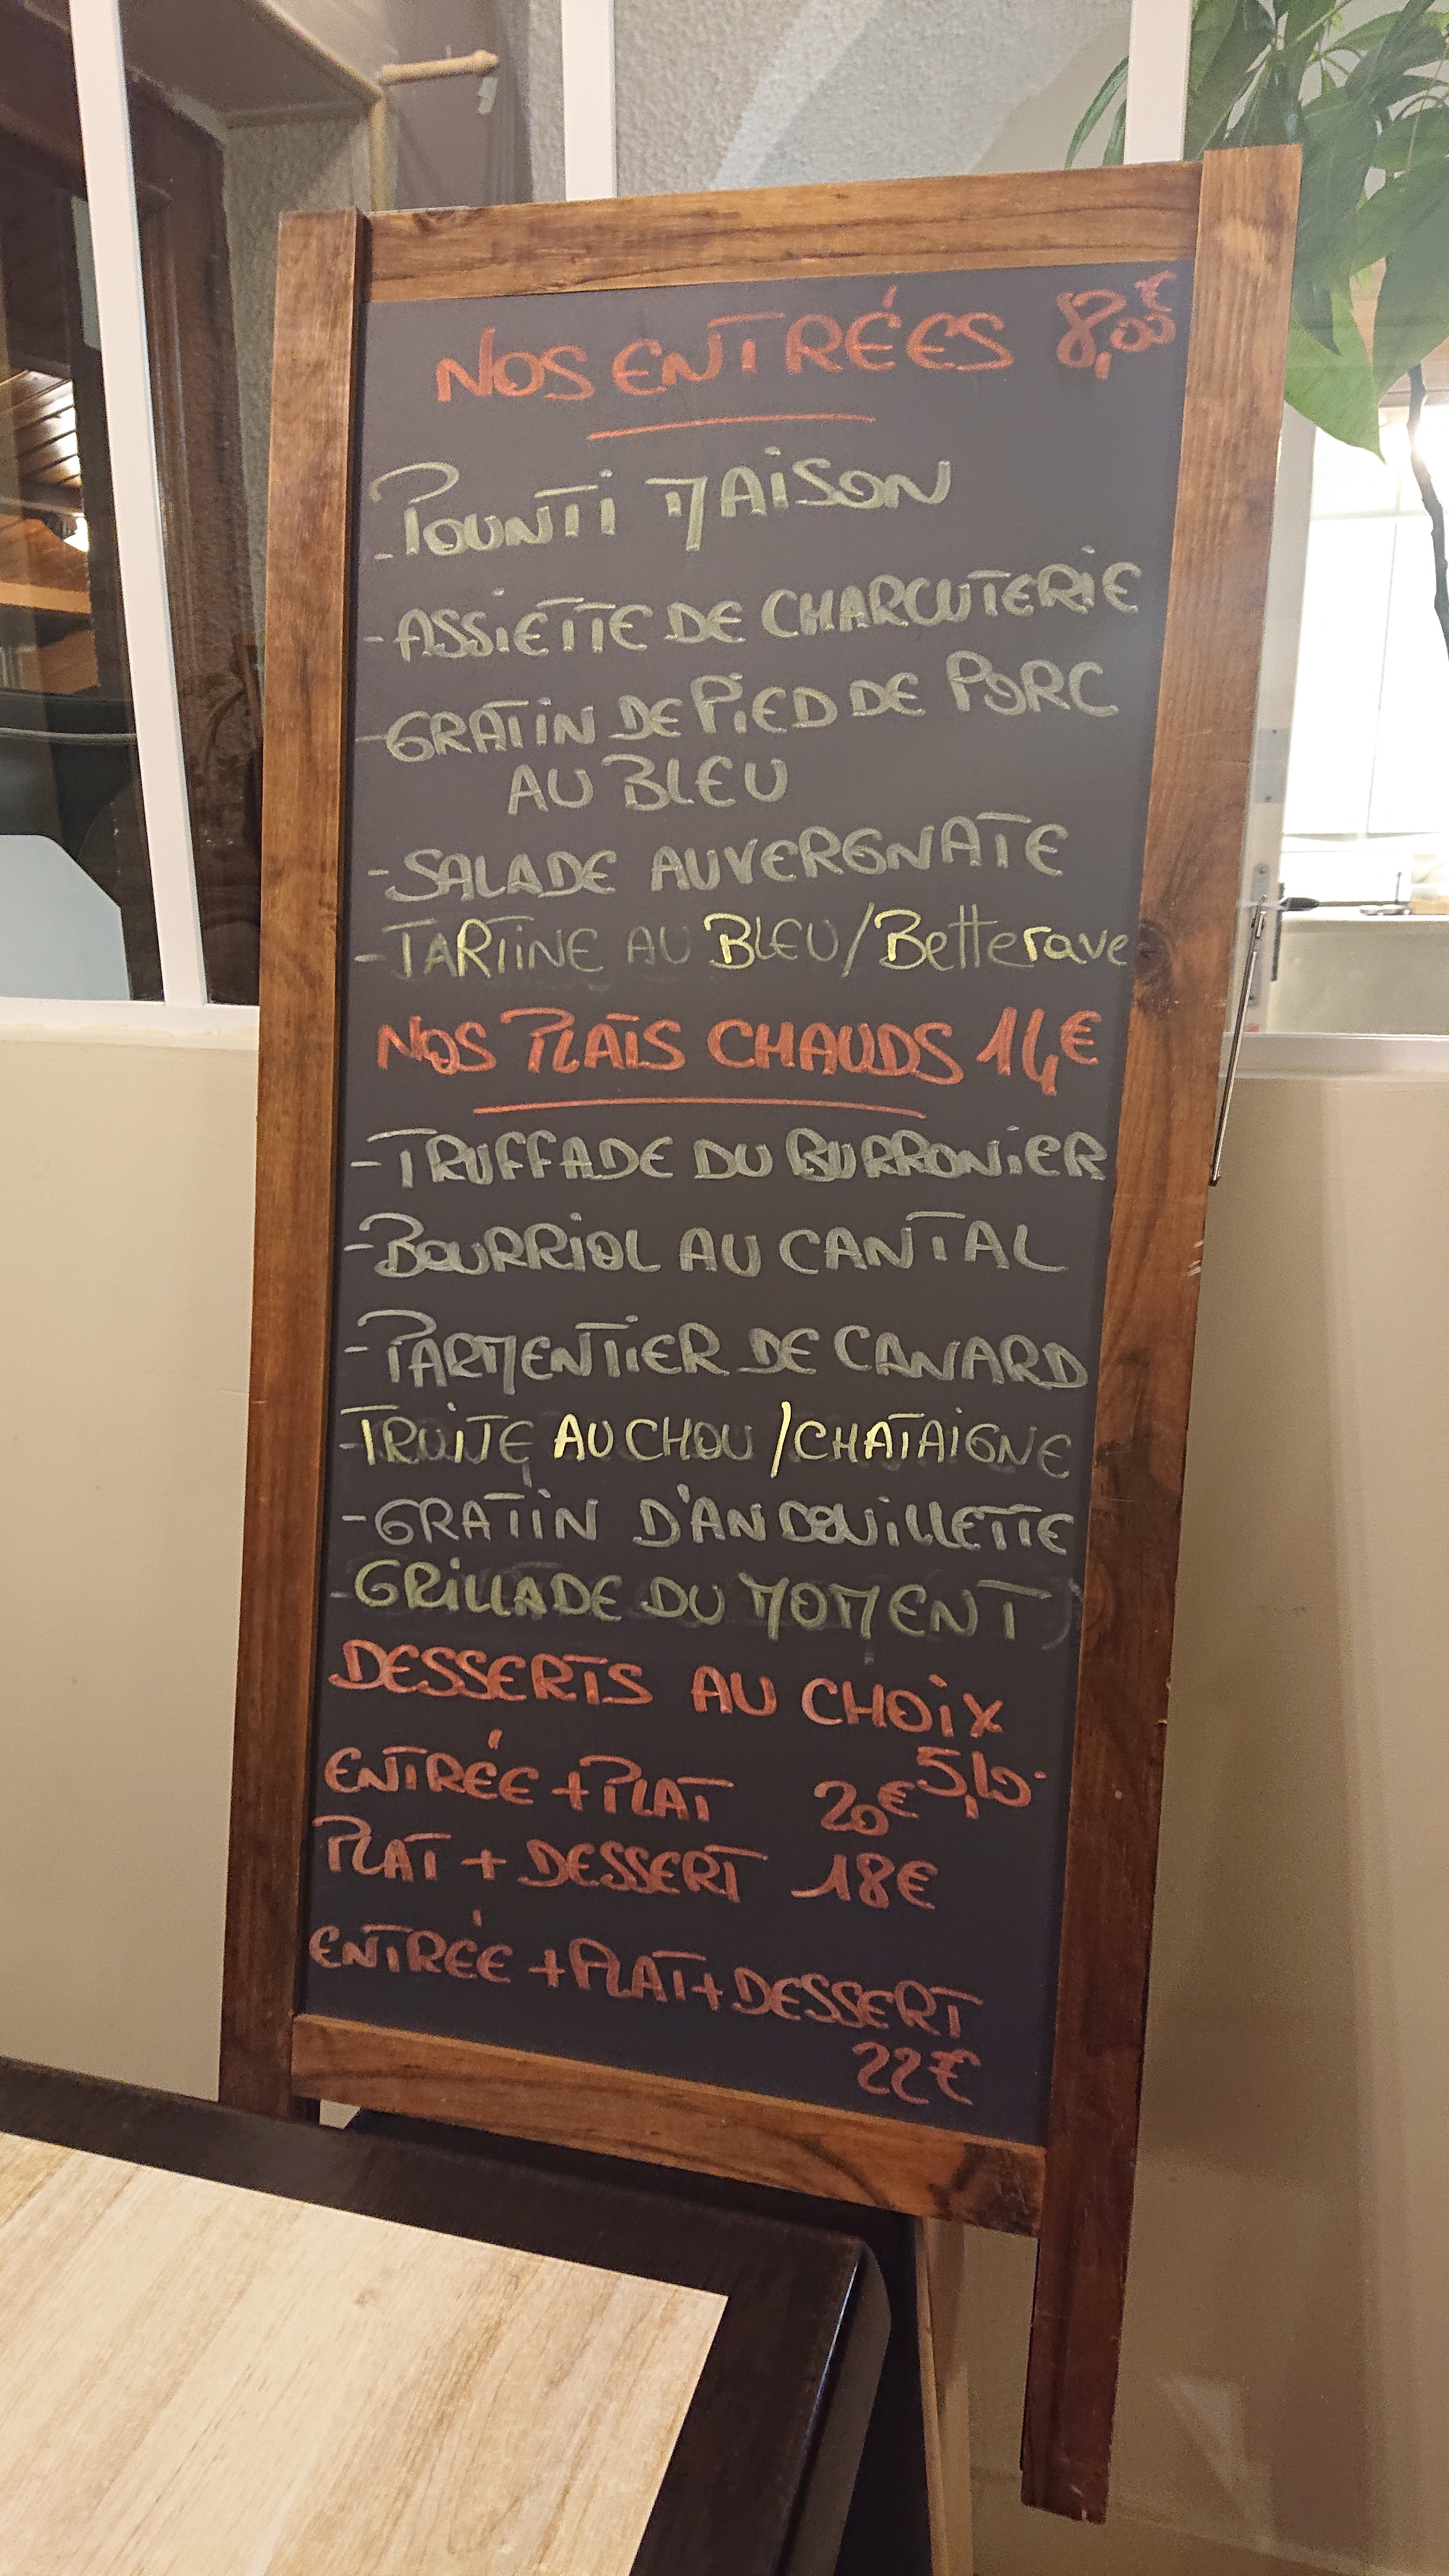 NOS ENTRÉES 8,00€
-POUNTI MAISON
-ASSIETTE DE CHARCUTERIE
-GRATIN DE PIED DE PORC
AU BLEU
-SALADE AUVERGNATE
-TARTINE AU BLEU/Betterave
NOS PLATS CHAUDS 14€
-TRUFFADE DU BURRONIER
-BOURRIOL AU CANTAL
-PARMENTIER DE CANARD
-TRUITE AU CHOU /CHATAIGNE
-GRATIN D'ANDOUILLETTE
-GRILLADE DU MOMENT
DESSERTS AU CHOIX
5,10
ENTRÉE + PLAT 20€
PLAT + DESSERT 18€
ENTRÉE + PLAT + DESSERT
22€